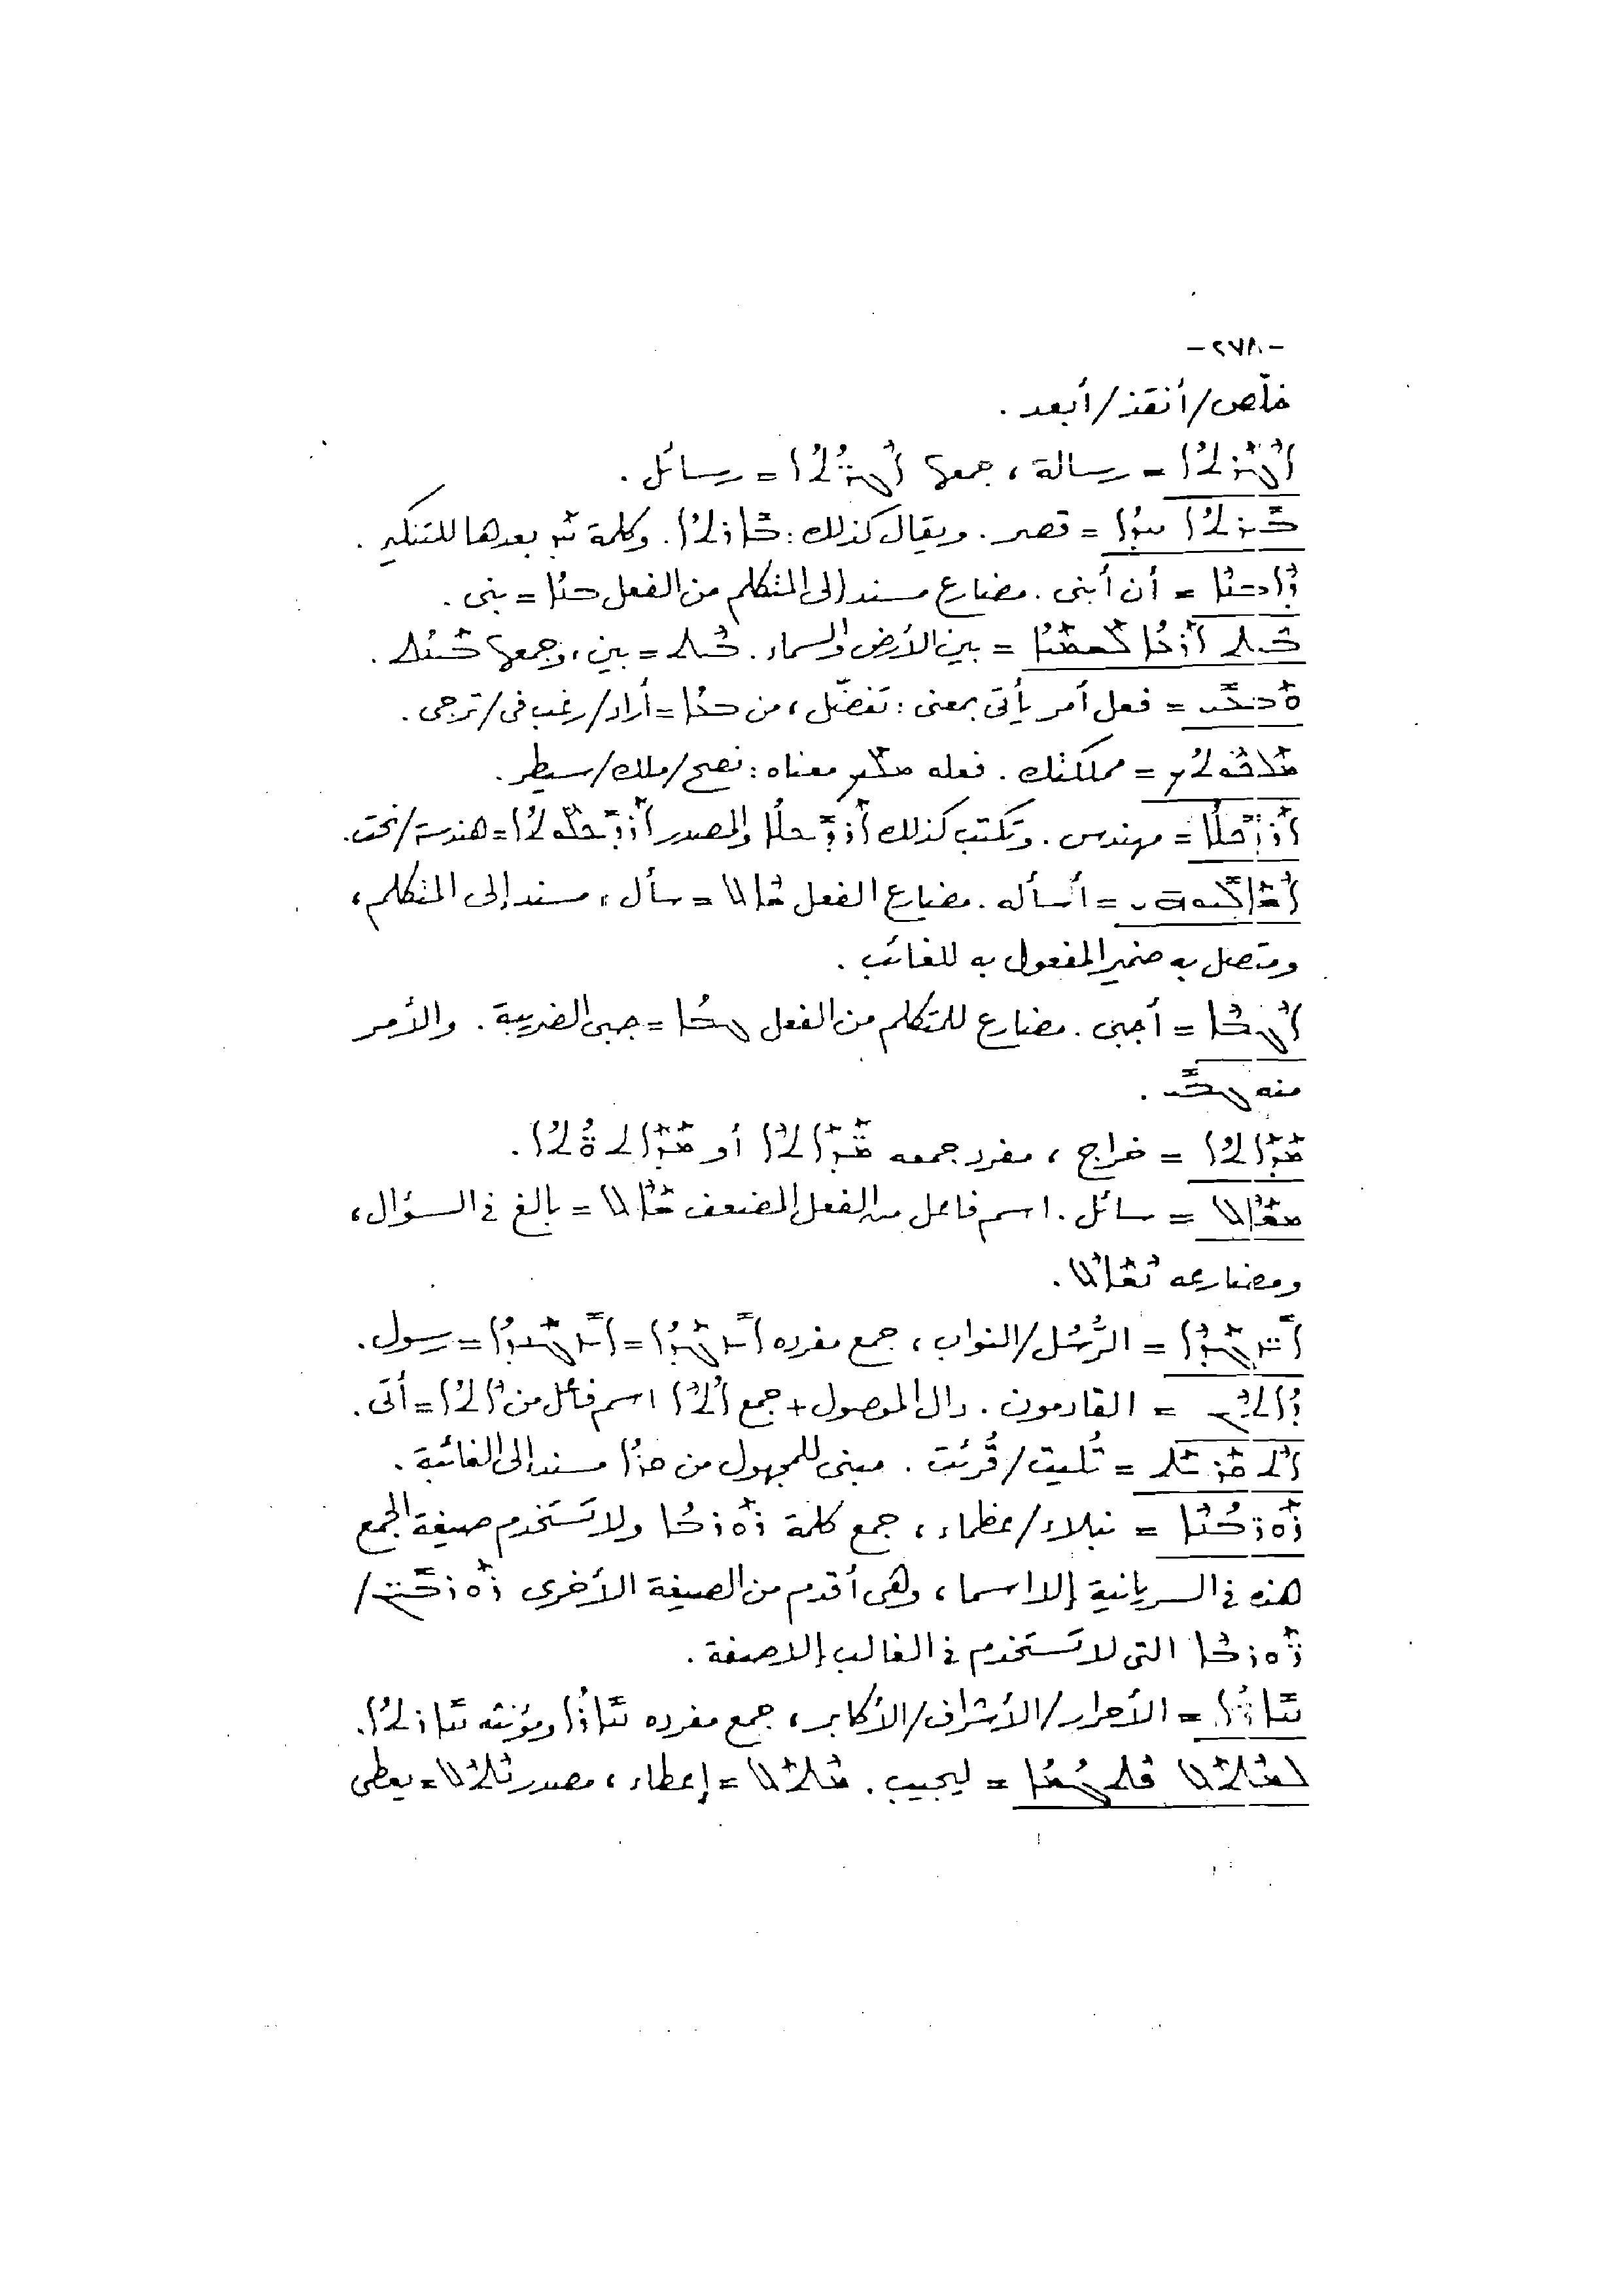 -٢٧٨-
خلّص/أنقذ/أبعد .
ܐܓܪܬܐ = رسالة ، جمعها ܐܓܪ̈ܬܐ = رسائل .
ܒܝܪܬܐ ܚܕܐ = قصر . ويقال كذلك : ܒܐܪܬܐ . وكلمة ܚܕ بعدها للتنكير .
ܕܐܒܢܐ = أن أبنى . مضارع مسند إلى المتكلم من الفعل ܒܢܐ = بنى .
ܒܝܬ ܐܪܥܐ ܠܫܡܝܐ = بين الأرض والسماء .  = بين ، وجمعها  .
ܨܒܝ = فعل أمر يأتى بمعنى : تفضّل ، من ܨܒܐ = أراد/رغب فى/ترجى .
ܡܠܟܘܬܟ = مملكتك . فعله ܡܠܟ معناه : نصح/ملك/سيطر .
ܐܪܕܟܠܐ = مهندس . وتكتب كذلك ܐܪܕܝܟܠܐ والمصدر ܐܪܕܝܟܠܘܬܐ = هندسة/نحت .
ܐܫܐܠܝܘܗܝ = أسأله . مضارع الفعل ܫܐܠ = سأل ، مسند إلى المتكلم ،
ومتصل به ضمير المفعول به للغائب .
ܐܓܒܐ = أجبى . مضارع للمتكلم من الفعل ܓܒܐ = جبى الضريبة . والأمر
منه ܓܒܝ .
ܡܕܐܬܐ = خراج ، مفرد جمعه ܡܕ̈ܐܬܐ أو ܡܕܐܬܘܬܐ .
ܡܫܐܠ = سائل . اسم فاعل من الفعل المضعف ܫܐܠ = بالغ فى السؤال ،
ومضارعه ܢܫܐܠ .
ܐܝܙܓܕ̈ܐ = الرُّسُل/النواب ، جمع مفرده ܐܝܙܓܕܐ = ܐܝܙܓܝܕܐ = رسول .
ܕܐܬܝܢ = القادمون . دال الموصول + جمع ܐܬܐ اسم فاعل من ܐܬܐ = أتى .
ܐܬܩܪܝܬ = تُليت/قُرئت . مبنى للمجهول من ܩܪܐ مسند إلى الغائبة .
ܪܘܪܒܢܐ = نبلاء/عظماء ، جمع كلمة ܪܘܪܒܐ ولا تستخدم صيغة الجمع
هذه فى السريانية إلا اسما ، وهى أقدم من الصيغة الأخرى ܪܘܪܒܝܢ /
ܪܘܪܒܐ التى لا تستخدم فى الغالب إلا صفة .
ܚܐܪ̈ܐ = الأحرار/الأشراف/الأكابر ، جمع مفرده ܚܐܪܐ ومؤنثه ܚܐܪܬܐ .
ܠܡܬܠ ܦܬܓܡܐ = ليجيب . ܡܬܠ = إعطاء ، مصدر ܢܬܠ = يعطى